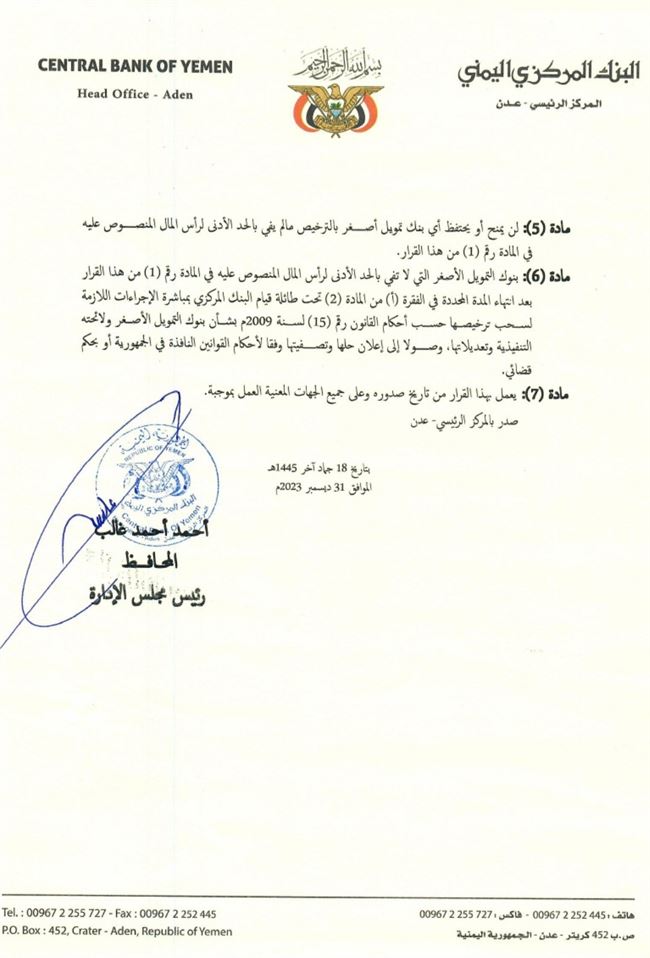 CENTRAL BANK OF YEMEN
Head Office - Aden
بسم الله الرحمن الرحيم
البنك المركزي اليمني
المركز الرئيسي - عدن
مادة (5): لن يمنح أو يحتفظ أي بنك تمويل أصغر بالترخيص مالم يفي بالحد الأدنى لرأس المال المنصوص عليه
في المادة رقم (1) من هذا القرار.
مادة (6): بنوك التمويل الأصغر التي لا تفي بالحد الأدنى لرأس المال المنصوص عليه في المادة رقم (1) من هذا القرار
بعد انتهاء المدة المحددة في الفقرة (أ) من المادة (2) تحت طائلة قيام البنك المركزي بمباشرة الإجراءات اللازمة
لسحب ترخيصها حسب أحكام القانون رقم (15) لسنة 2009م بشأن بنوك التمويل الأصغر ولائحته
التنفيذية وتعديلاتها، وصولا إلى إعلان حلها وتصفيتها وفقا لأحكام القوانين النافذة في الجمهورية أو بحكم
قضائي.
مادة (7): يعمل بهذا القرار من تاريخ صدوره وعلى جميع الجهات المعنية العمل بموجبة.
صدر بالمركز الرئيسي- عدن
بتاريخ 18 جماد آخر 1445هـ
الموافق 31 ديسمبر 2023م
الجمهورية اليمنية
REPUBLIC OF YEMEN
البنك المركزي اليمني
Central Of Yemen
أحمد أحمد غالب
المحافظ
رئيس مجلس الإدارة
Tel. : 00967 2 255 727 - Fax : 00967 2 252 445
P.O. Box : 452, Crater - Aden, Republic of Yemen
هاتف : 00967 2 252 445 - فاكس : 00967 2 255 727
ص.ب 452 كريتر - عدن - الجمهورية اليمنية